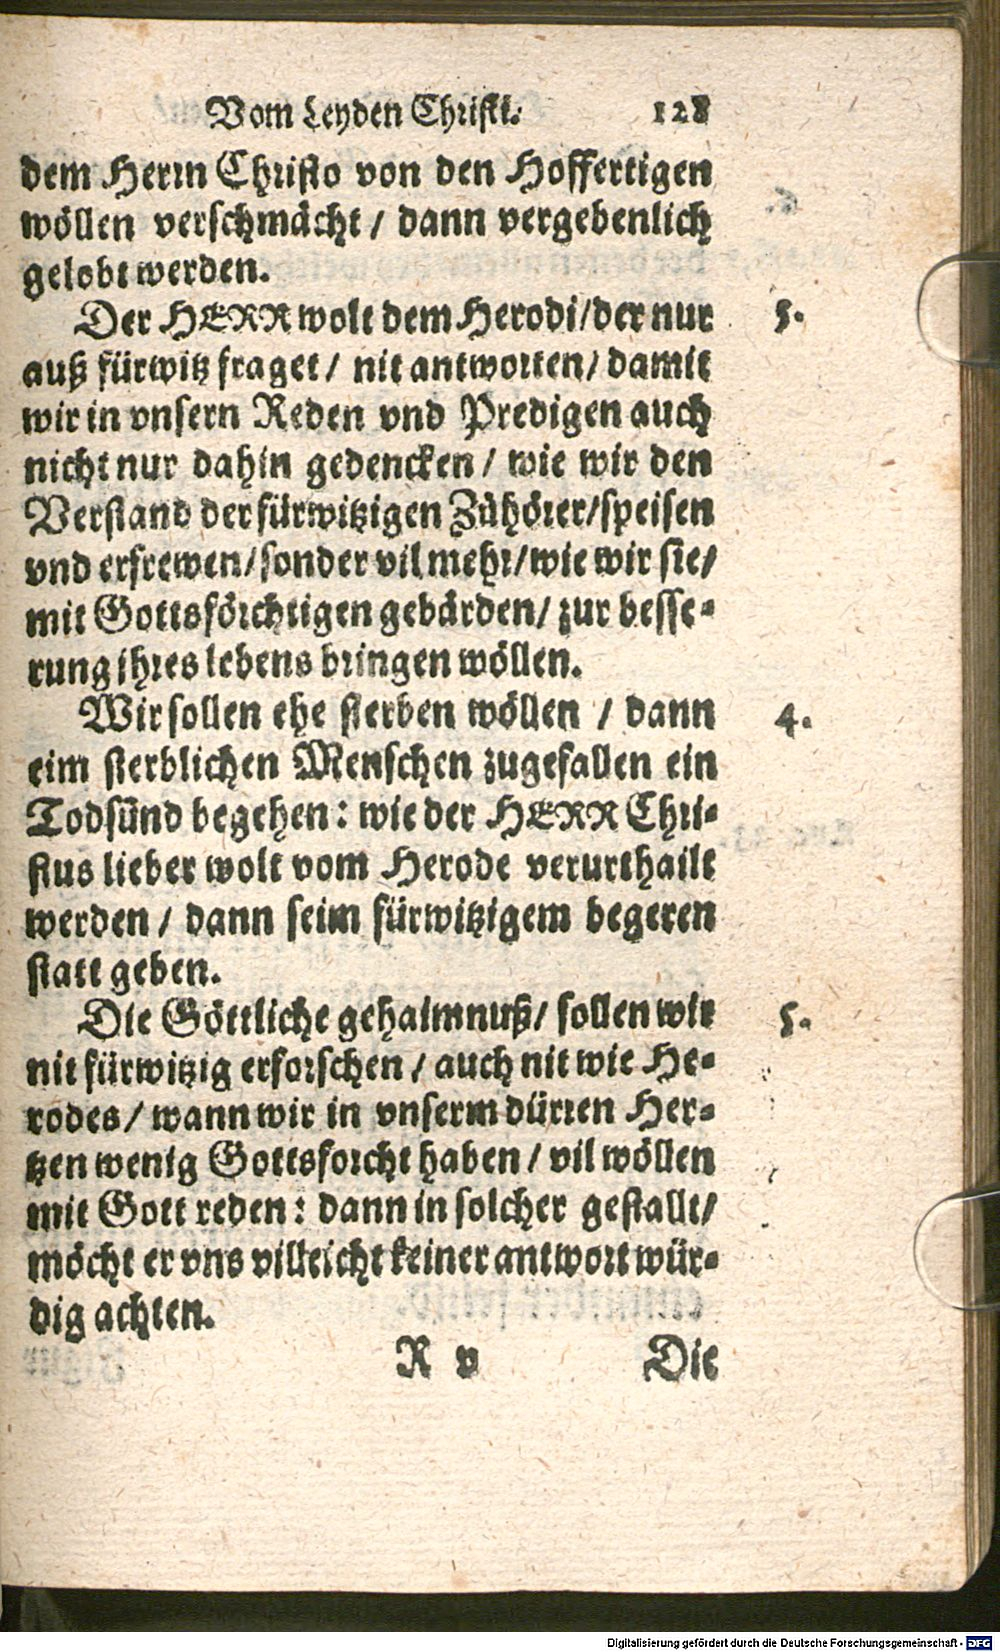 Vom Leyden Christi. 128
dem Herrn Christo von den Hoffertigen
wöllen verschmächt / dann vergebenlich
gelobt werden.
Der HERR wolt dem Herodi/der nur 3.
auß fürwitz fraget / nit antworten/ damit
wir in vnsern Reden vnd Predigen auch
nicht nur dahin gedencken / wie wir den
Verstand der fürwitzigen Zůhörer/speisen
vnd erfrewen/sonder vil mehr/wie wir sie/
mit Gottsförchtigen gebärden/ zur besse-
rung jhres lebens bringen wöllen.
Wir sollen ehe sterben wöllen / dann 4.
eim sterblichen Menschen zugefallen ein
Todsünd begehen: wie der HERR Chri-
stus lieber wolt vom Herode verurthailt
werden / dann seim fürwitzigem begeren
statt geben.
Die Göttliche gehaimnuß/ sollen wir 5.
nit fürwitzig erforschen / auch nit wie He-
rodes/ wann wir in vnserm dürren Her-
tzen wenig Gottsforcht haben / vil wöllen
mit Gott reden: dann in solcher gestallt/
möcht er vns villeicht keiner antwort wür-
dig achten.
R v Die
Digitalisierung gefördert durch die Deutsche Forschungsgemeinschaft - DFG